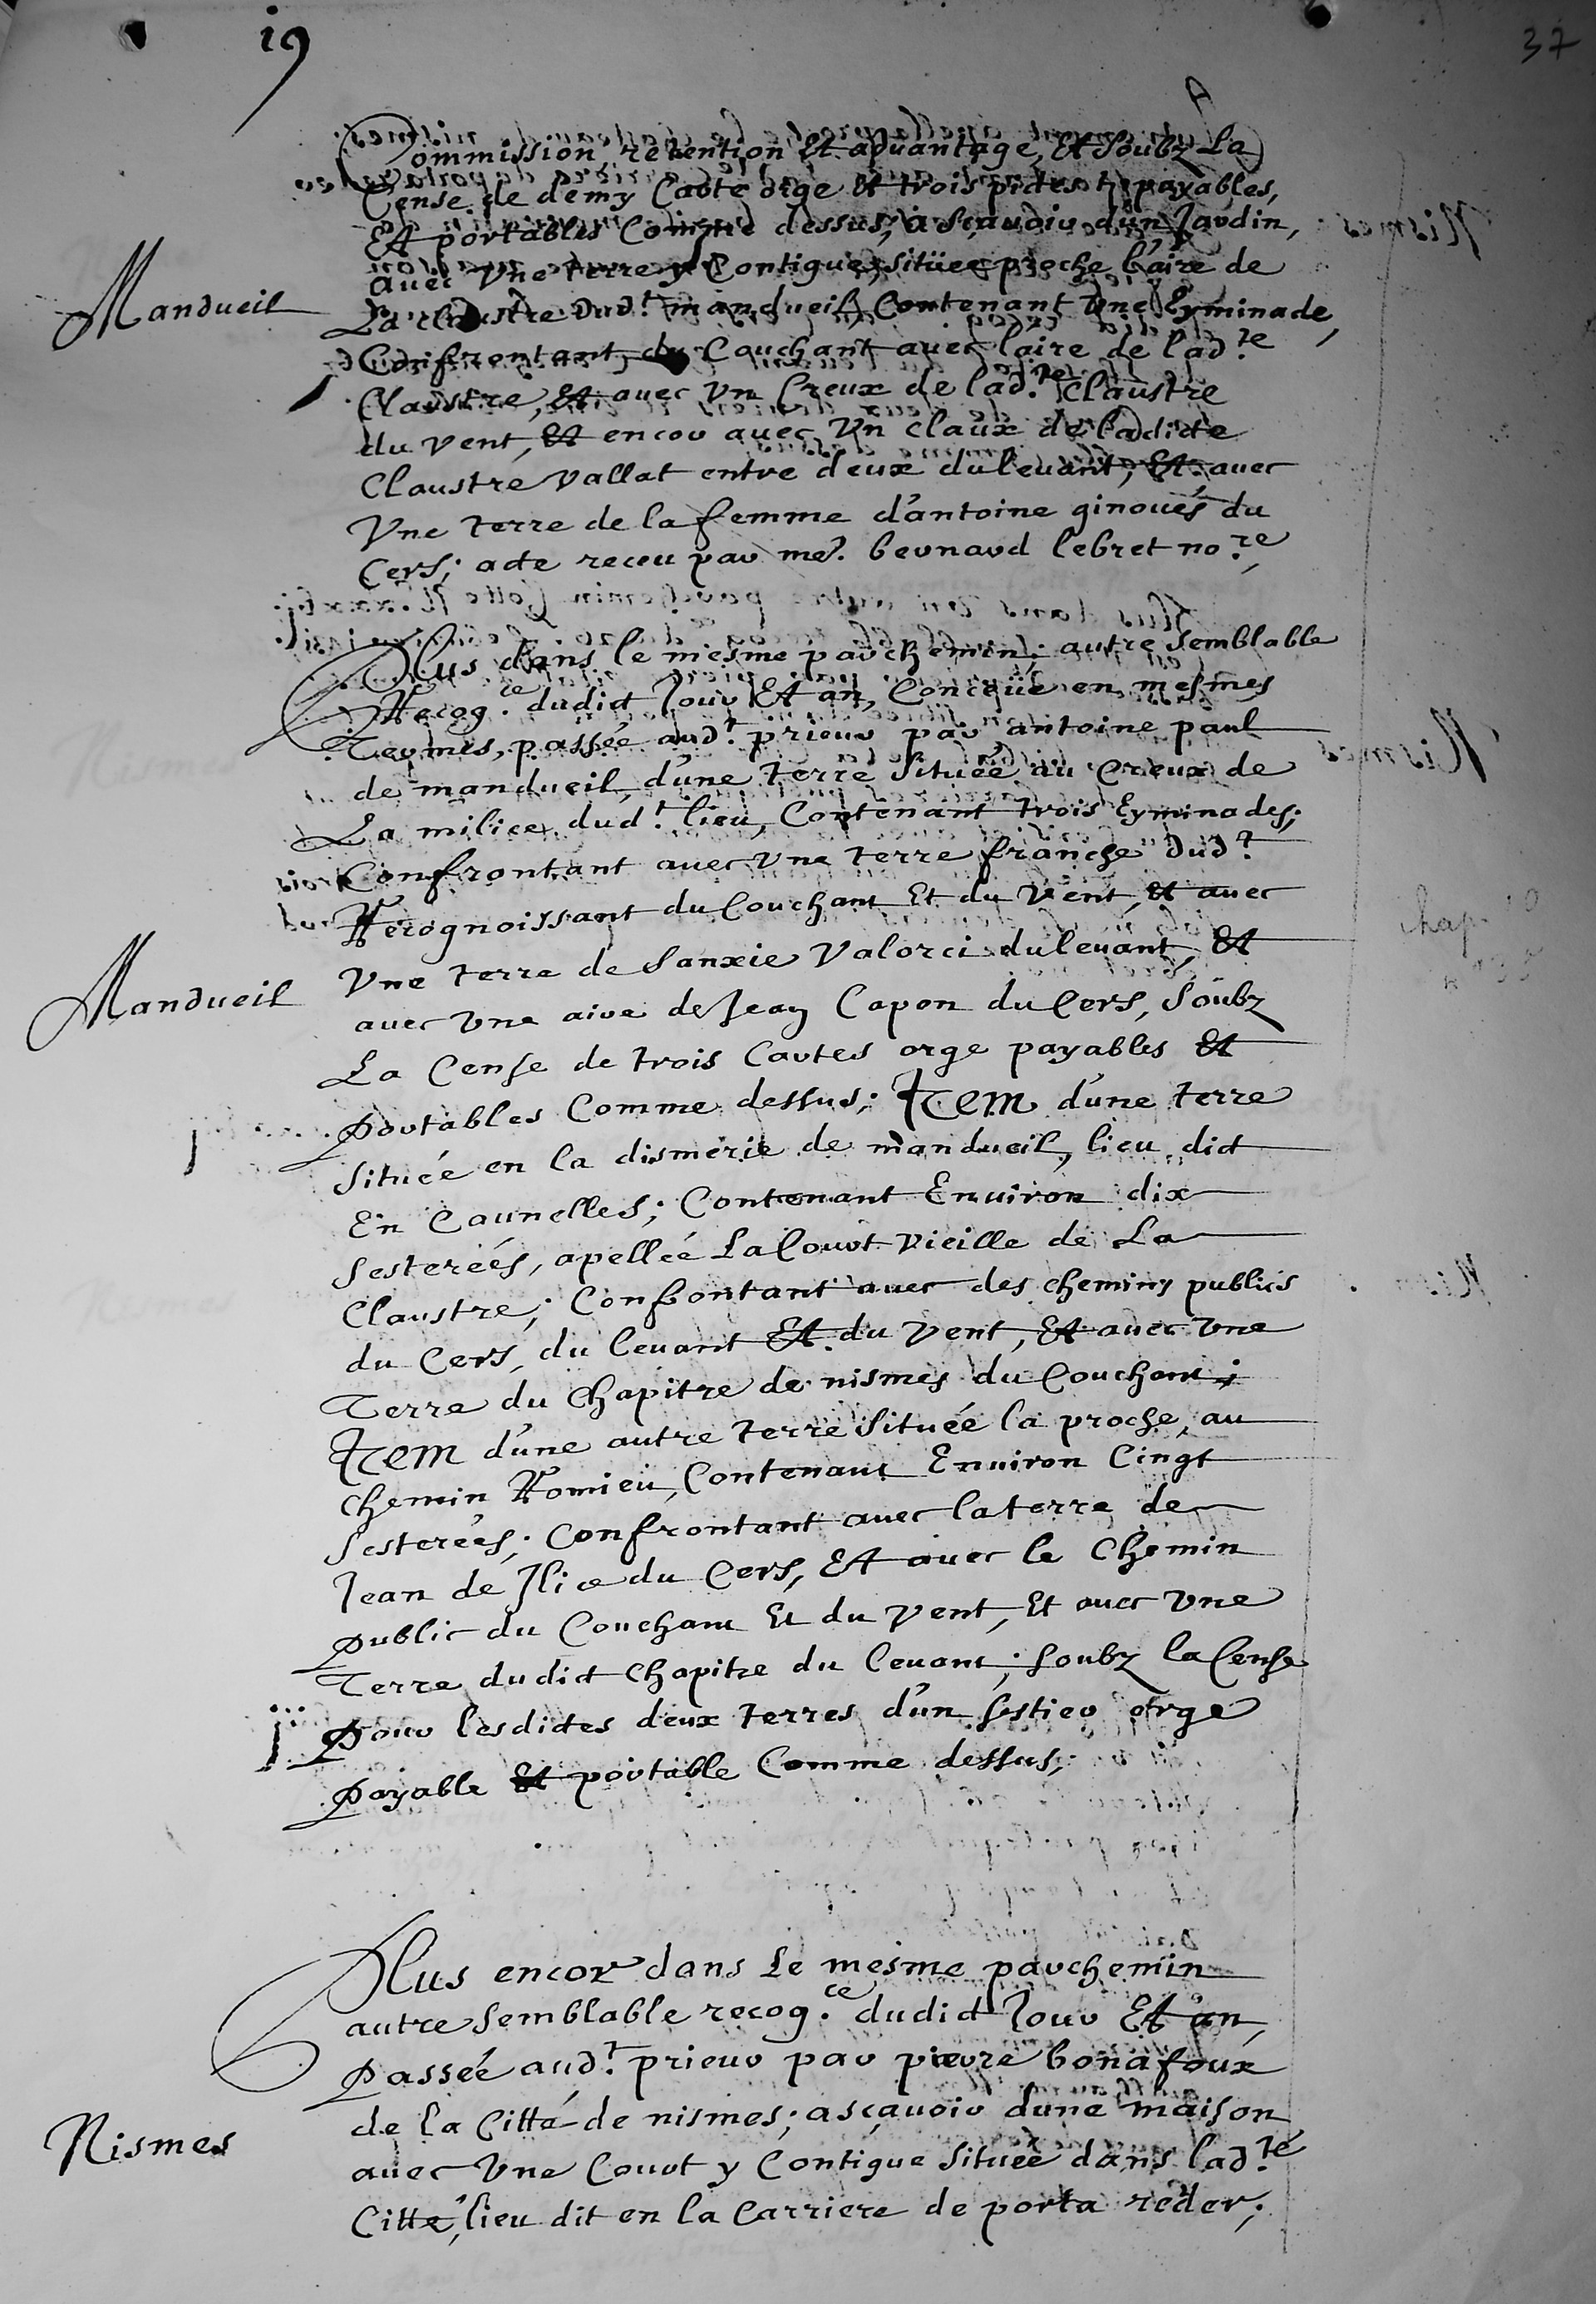 19
37
A
Commission, retention Et aduantage, Et Soubz La
Cense de demy Carte orge Et trois pictes t. payables,
Et portables Comme dessus, à Scauoir d'un Jardin,
auec Vne terre y Contigue, Située proche l'aire de
Mandueil
La claustre dud.t mandueil, Contenant Vne Eyminade,
Confrontant, du Couchant auec l'aire de lad.te
Claustre, Et auec Vn Creux de lad.te Claustre
du Vent, Et encor auec Vn claux de ladicte
Claustre Vallat entre deux du leuant, Et auec
Vne terre de la femme d'antoine ginoués du
Cers; acte receu par me. bernard lebret no.re,
Plus dans le mesme parchemin; autre Semblable
Recog.ce dudict Jour Et an, Conceüe en mesmes
Termes, passée aud.t prieur par antoine paul
de mandueil, d'une terre Située au Creux de
La milice dud.t lieu, Contenant trois Eyminades;
Confrontant auec Vne terre franche dud.t
Recognoissant du Couchant Et du Vent, Et auec
Vne terre de Sanxie Valorci du leuant, Et
Mandueil
auec Vne aire de Jean Capon du Cers, Soubz
La Cense de trois Cartes orge payables Et
portables Comme dessus; Item d'une terre
Située en la dismerie de mandueil, lieu dict
En Caunelles; Contenant Enuiron dix
Sesterées, apellée La Court Vieille de La
Claustre; Confrontant auec des chemins publics
du Cers, du leuant Et du Vent, Et auec Vne
Terre du Chapitre de nismes du Couchant;
Item d'une autre terre Située la proche, au
chemin Romieu, Contenant Enuiron Cinqt
Sesterées; Confrontant auec la terre de
Jean de Ilice du Cers, Et auec le Chemin
public du Couchant Et du Vent, Et auec Vne
Terre dudict Chapitre du leuant; Soubz la Cense
Pour lesdictes deux terres d'un sestier orge
Payable Et portable Comme dessus;
Plus encor dans Le mesme parchemin
autre Semblable recog.ce dudict Jour Et an,
Passée aud.t prieur par pierre bonafoux
de la Citté de nismes; asçauoir dune maison
Nismes
auec Vne Court y Contigue Située dans lad.te
Citté, lieu dit en la Carriere de porta reder;